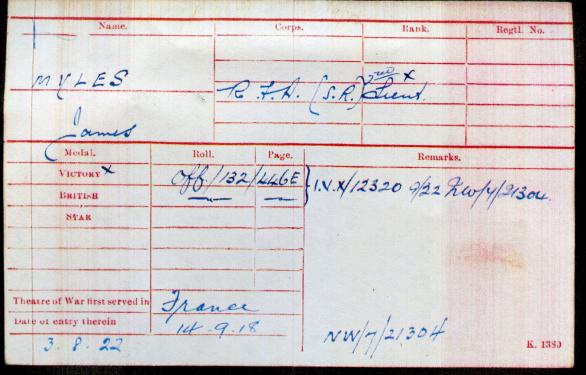 Name. Corps. Rank. Regtl. No.
MYLES R.F.A. (S.R.) 2nd x Lieut.
James
Medal. Roll. Page. Remarks.
VICTORY x Off/132 446E } I.V.X/12320 9/22 NW/7/21304.
BRITISH
STAR
Theatre of War first served in France
Date of entry therein 14-9-18
3.8.22 NW/7/21304 K. 1380